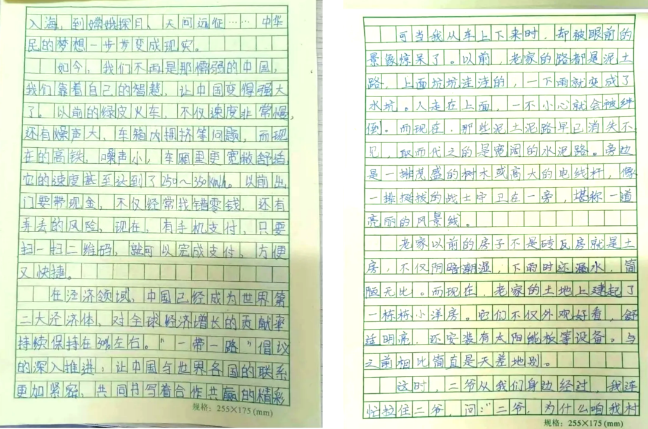 入海，到嫦娥探月、天问远征……中华
民的梦想一步步变成现实。
如今，我们不再是那懦弱的中国，
我们靠着自己的智慧，让中国变得强大
了。以前的绿皮火车，不仅速度非常慢，
还有噪声大，车箱内拥挤等问题，而现
在的高铁，噪声小，车厢里更宽敞舒适
它的速度甚至达到了250～350km/h。以前出
门要带现金，不仅经常找错零钱，还有
丢失的风险，现在，有手机支付，只要
扫一扫二维码，就可以完成支付，方便
又快捷。
在经济领域，中国已经成为世界第
二大经济体，对全球经济增长的贡献率
持续保持在30%左右。"一带一路"倡议
的深入推进，让中国与世界各国的联系
更加紧密，共同书写着合作共赢的精彩
规格：255×175(mm)
可当我从车上下来时，却被眼前的
景象惊呆了。以前，老家的路都是泥土
路，上面坑坑洼洼的，一下雨就变成了
水坑。人走在上面，一不小心就会被绊
倒。而现在，那些泥土泥路早已消失不
见，取而代之的是宽阔的水泥路。旁边
是一排茂盛的树木或高大的电线杆，像
一排挺拔的战士守卫在一旁，堪称一道
亮丽的风景线。
老家以前的房子不是砖瓦房就是土
房，不仅阴暗潮湿，下雨时还漏水，简
陋无比。而现在，老家的土地上建起了
一栋栋小洋房。它们不仅外观好看，舒
适明亮，还安装有太阳能板等设备。与
之前相比简直是天差地别。
这时，二爷从我们身边经过，我连
忙拉住二爷，问："二爷，为什么咱我村
规格：255×175(mm)